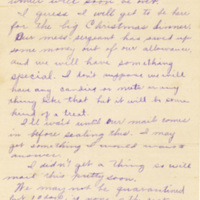 I guess I will get to be here
for the big Christmas dinner.
Our mess sergeant has saved up
some money out of our allowance
and we will have something
special. I don't suppose we will
have any candies or nuts or any
thing like that but it will be some
kind of a treat.
I'll wait until our mail comes
in before sealing this. I may
get something I would want to
answer.
I didn't get a thing so will
mail this pretty soon.
We may not be quarantined